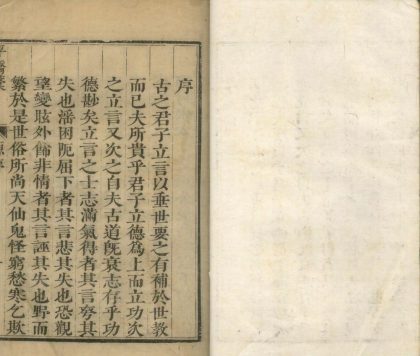 序
古之君子立言以垂世要之有補於世教
而已夫所貴乎君子立德為上而立功次
之立言又次之自夫古道既衰志存乎功
德尠矣立言之士志滿氣得者其言夸其
失也潘困阨屈下者其言悲其失也恐觀
望變眩外飾非情者其言誣其失也野而
繁於是世俗所尚天仙鬼怪窮愁寒乞欺